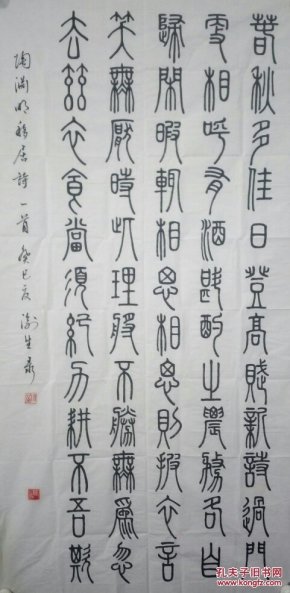 春秋多佳日登高賦新詩過門
更相呼有酒斟酌之農務各自
歸閒暇輒相思相思則披衣言
笑無厭時此理將不勝無為忽
去茲衣食當須紀力耕不吾欺
陶渊明移居詩一首 癸巳夏
孔夫子旧书网